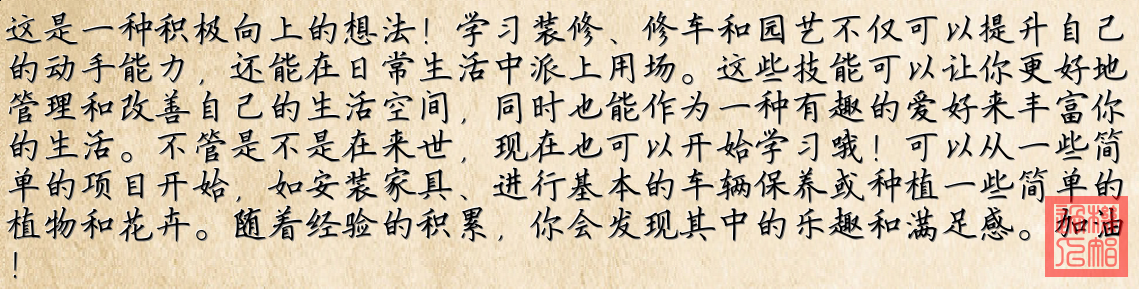 这是一种积极向上的想法！学习装修、修车和园艺不仅可以提升自己
的动手能力，还能在日常生活中派上用场。这些技能可以让你更好地
管理和改善自己的生活空间，同时也能作为一种有趣的爱好来丰富你
的生活。不管是不是在来世，现在也可以开始学习哦！可以从一些简
单的项目开始，如安装家具、进行基本的车辆保养或种植一些简单的
植物和花卉。随着经验的积累，你会发现其中的乐趣和满足感。加油
！